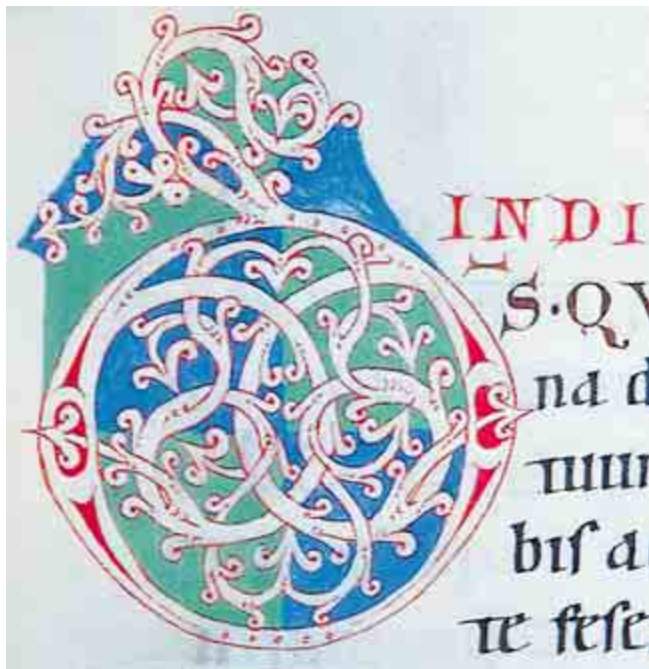 DINDI
S·QV
na d
tuum
biſ a
te feſe